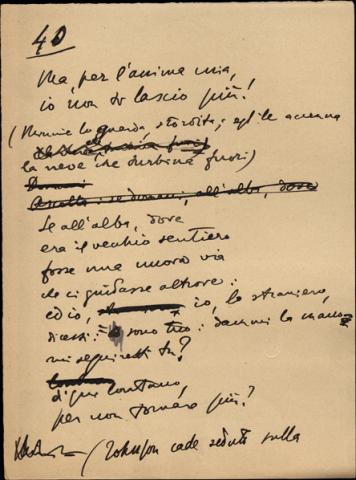 40
Ma, per l'anima mia,
io non ti lascio più!
(Mormie lo guarda, stordita; egli le accenna
la neve che turbina fuori)
Domani
Ascolta: se domani, all'alba, dove
Se all'alba, dove
era il vecchio sentiero
fosse una nuova via
che ci guidasse altrove:
ed io, io, lo straniero,
dicessi: = sono tuo: dammi la mano =
mi seguiresti tu?
lontano
di qui lontano,
per non tornare più?
(Johnson cade seduto sulla